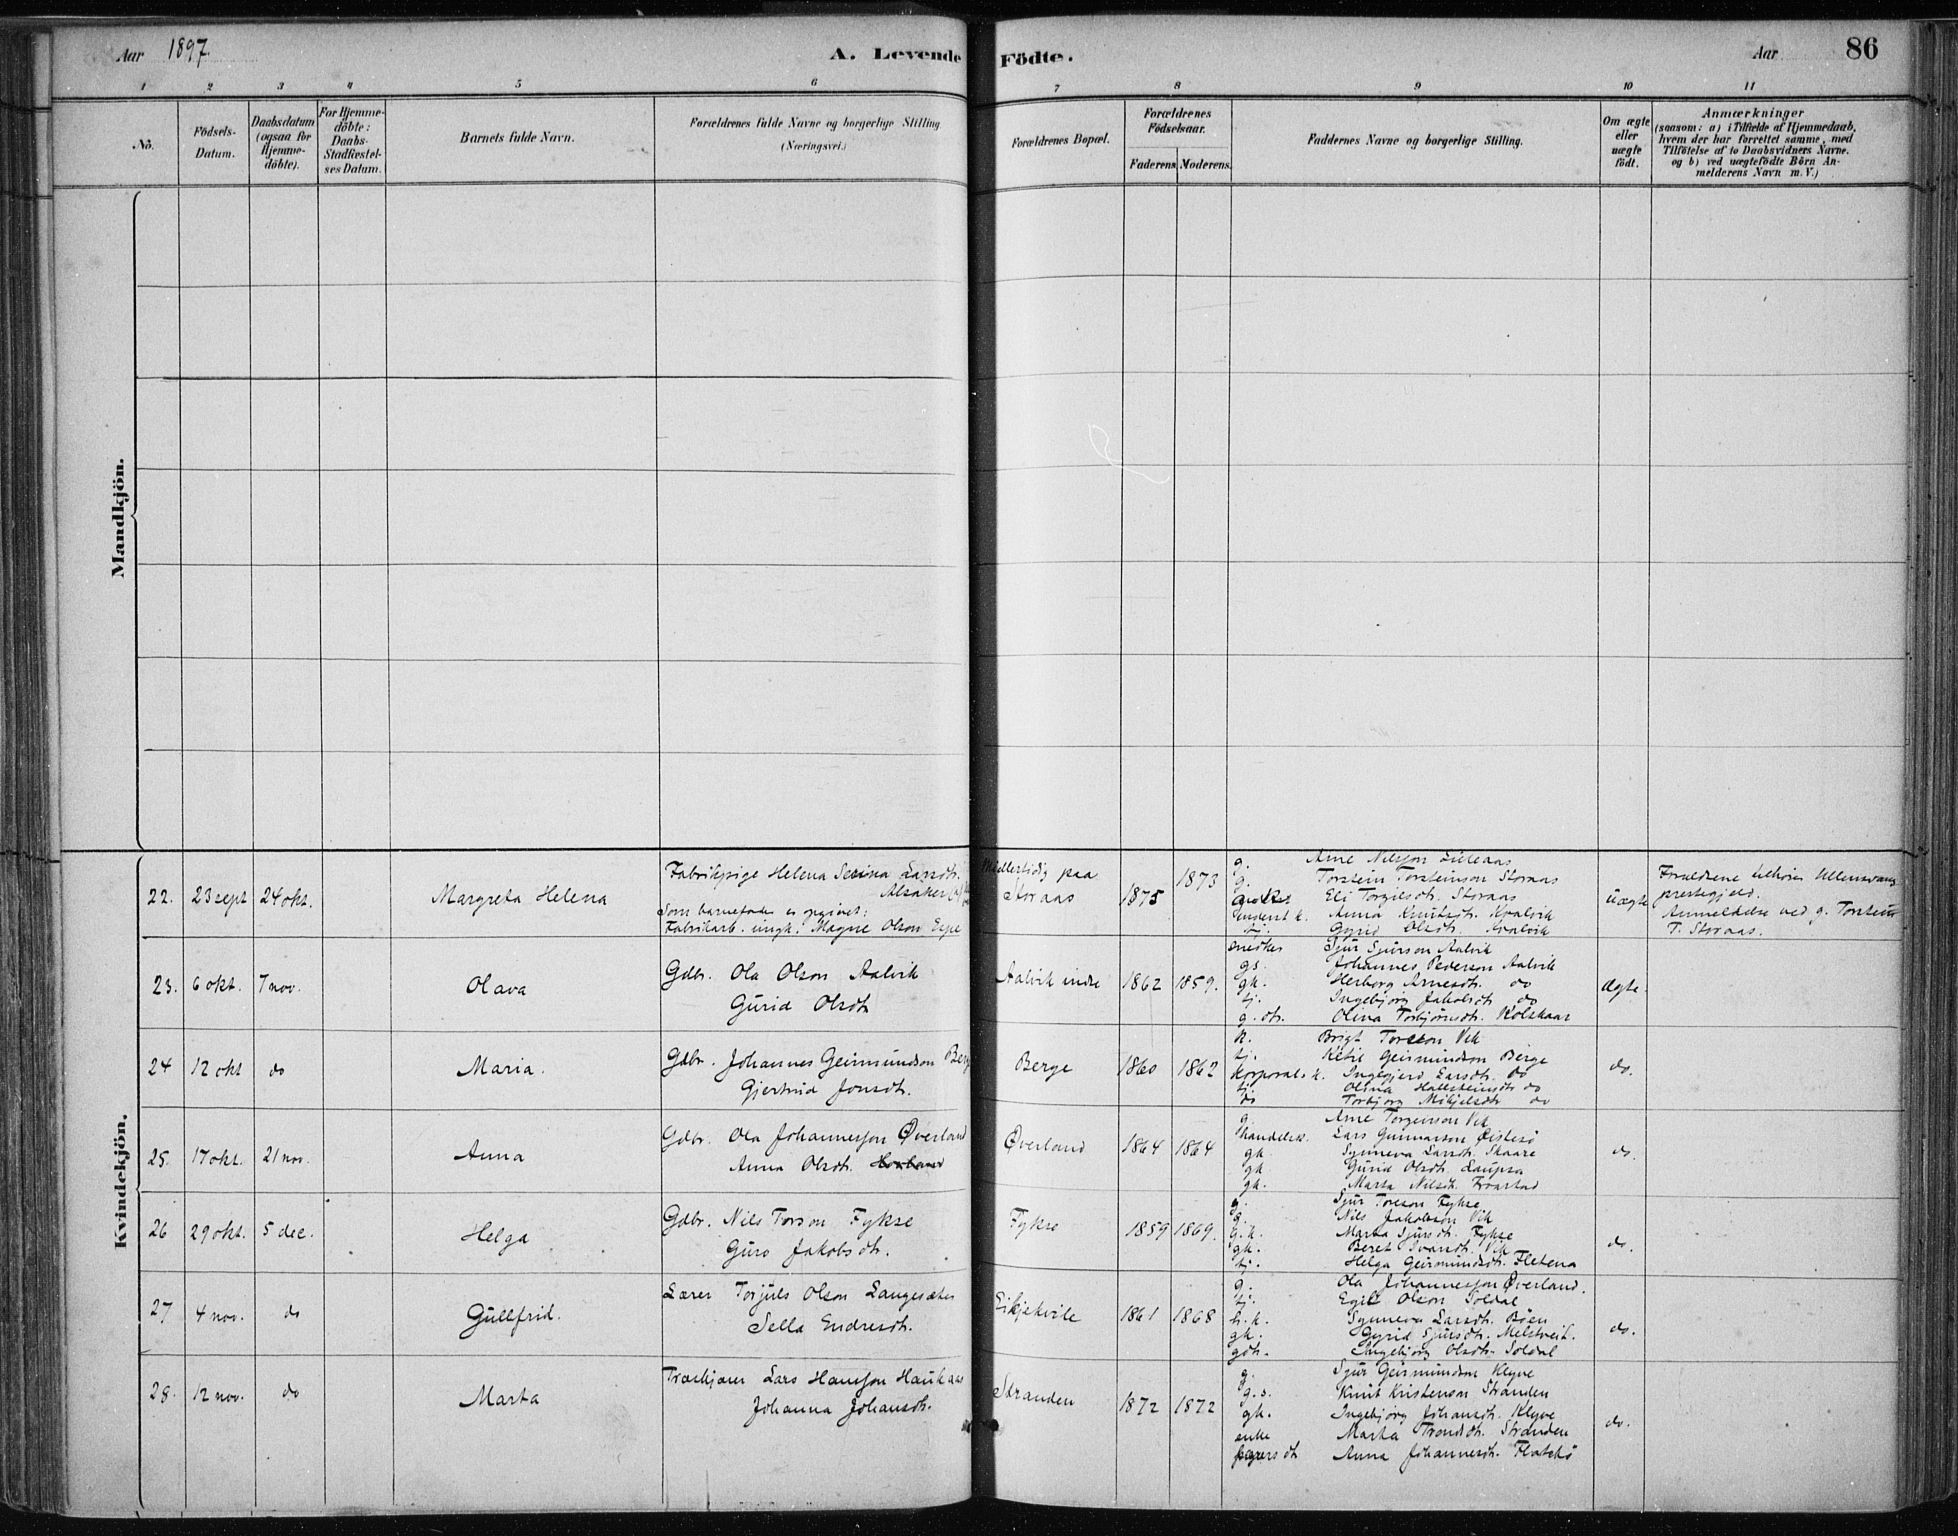 Aar 1897. A. Levende Födte. Aar 86
1 2 3 4 5 6 7 8 9 10 11
No.
Födsels-
Datum.
Daabsdatum
(ogsaa for
Hjemme-
döbte).
For Hjemme-
döbte:
Daabs-
Stadfæstel-
ses Datum.
Barnets fulde Navn.
Forældrenes fulde Navne og borgerlige Stilling
(Næringsvei.)
Forældrenes Bopæl.
Forældrenes
Födselsaar.
Faderens. Moderens.
Faddernes Navne og borgerlige Stilling.
Om ægte
eller
uægte
födt.
Anmærkninger
(saasom: a) i Tilfælde af Hjemmedaab,
hvem der har forrettet samme, med
Tilföielse af to Daabsvidners Navne.
og b) ved uægtefödte Börn An-
melderens Navn m. V.)
Mandkjön.
Kvindekjön.
22. 23 sept 24 okt. Margreta Helena
Fabrikpige Helena Serina Larsdt.
Alsaker
Som barnefader er opgivet:
Fabrikarb. ungk. Magne Olson Espe
Midlertidig paa
Storaas
1875 1873
g. Arne Nilsson Lileaas
g. Torstein Torsteinson Storaas
Eli Torgilsdt. Storaas
Anna Knutsdt. Kvalvik
tj. Gyrid Olsdt. Kvalvik
Uægte
Forældrene tilhører Ullensvang
prestegjeld.
Anmeldelse ved g. Torstein
T. Storaas.
23. 6 okt. 7 nov. Olava
Gdbr. Ola Olson Aalvik
Gurid Olsdt
Aalvik indre 1862 1859.
snedker Sjur Sjurson Aalvik
gs. Johannes Pederson Aalvik
gk. Herborg Arnesdt. do
tj. Ingebjørg Jakobsdt do
g.dt. Olina Torbjørnsdt. Kolskaar
Ægte.
24 12 okt do Maria.
Gdbr. Johannes Geirmundson Berge
Gjertrud Jonsdt.
Berge 1860 1862
k. Brigt Toreson Vik
tj. Ketil Geirmundson Berge
Korporals k. Ingegjerd Larsdt. do
tj. Olina Hallsteinsdt do
do Torbjørg Mikjelsdt do
do.
25. 17 okt. 21 nov. Anna
Gdbr. Ola Johannesson Øverland
Anna Olsdt.
Øverland 1864 1864
g. Arne Torgeirson Vik
handelsk. Lars Gunnarson Øistesø
gk. Synneva Larsdt. Skaare
gk Gurid Olsdt. Laupsa
gk. Marta Nilsdt. Tvartad
do.
26 29 okt. 5 dec. Helga
Gdbr. Nils Torson Fykse
Guro Jakobsdt.
Fykse 1859 1869.
g. Sjur Toreson Fykse
g. Nils Jakobson Vik
g.k. Marta Sjursdt. Fykse
gk. Beret Ivarsdt. Vik
tj. Helga Geirmundsdt. Fletena
do.
27 4 nov. do Gullfrid.
Lærer Torjuls Olson Langesæter
Sella Endresdt.
Eikjekvile 1861 1868
g. Ola Johannesson Øverland.
tj. Egil Olson Soldal
h.k. Synneva Larsdt. Bøen
gk. Gyrid Sjursdt. Melstveit.
gdt. Ingebjørg Olsdt. Soldal
do.
28. 12 nov. do Marta
Træskjærer Lars Hansson Haukaas
Johanna Johansdt.
Stranden 1872 1872
g. Sjur Geirmundson Klyve
g.s. Knut Kristenson Stranden
gk. Ingebjørg Johansdt. Klyve
enke Marta Trondsdt. Stranden
Anna Johannesdt. Flatebø
do.